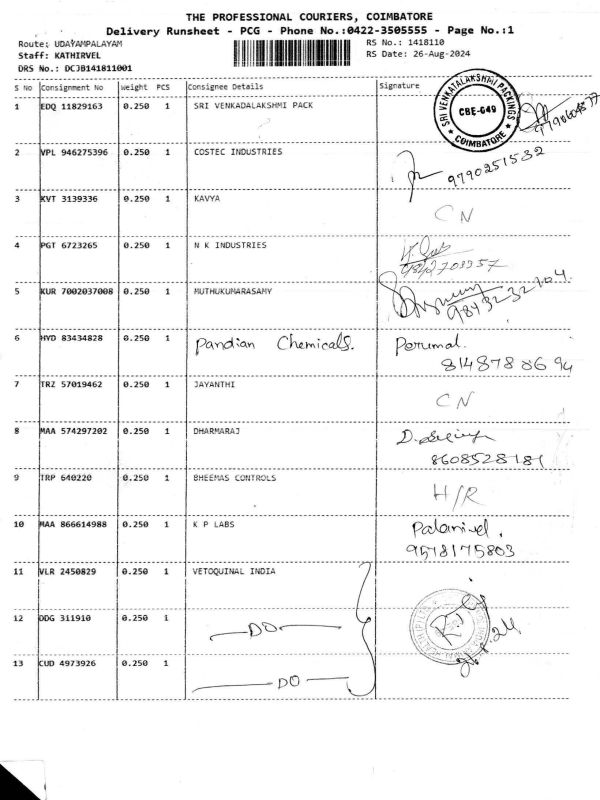 THE PROFESSIONAL COURIERS, COIMBATORE
Delivery Runsheet - PCG - Phone No.:0422-3505555 - Page No.:1
Route: UDAYAMPALAYAM
RS No.: 1418110
Staff: KATHIRVEL
RS Date: 26-Aug-2024
DRS No.: DCJB141811001
S No Consignment No Weight PCS Consignee Details Signature
1 EDQ 11829163 0.250 1 SRI VENKADALAKSHMI PACK
SRI VENKATALAKSHMI PACKINGS
CBE-649
★ COIMBATORE ★
2 VPL 946275396 0.250 1 COSTEC INDUSTRIES 9790251532
3 KVT 3139336 0.250 1 KAVYA CN
4 PGT 6723265 0.250 1 N K INDUSTRIES
5 KUR 7002037008 0.250 1 MUTHUKUMARASAMY
9843232104
6 HYD 83434828 0.250 1 Pandian Chemicals. Perumal.
8148780694
7 TRZ 57019462 0.250 1 JAYANTHI CN
8 MAA 574297202 0.250 1 DHARMARAJ
8608528181
9 TRP 640220 0.250 1 BHEEMAS CONTROLS H/R
10 MAA 866614988 0.250 1 K P LABS Palanivel.
9578175803
11 VLR 2450829 0.250 1 VETOQUINAL INDIA
12 DDG 311910 0.250 1 DO
13 CUD 4973926 0.250 1 DO